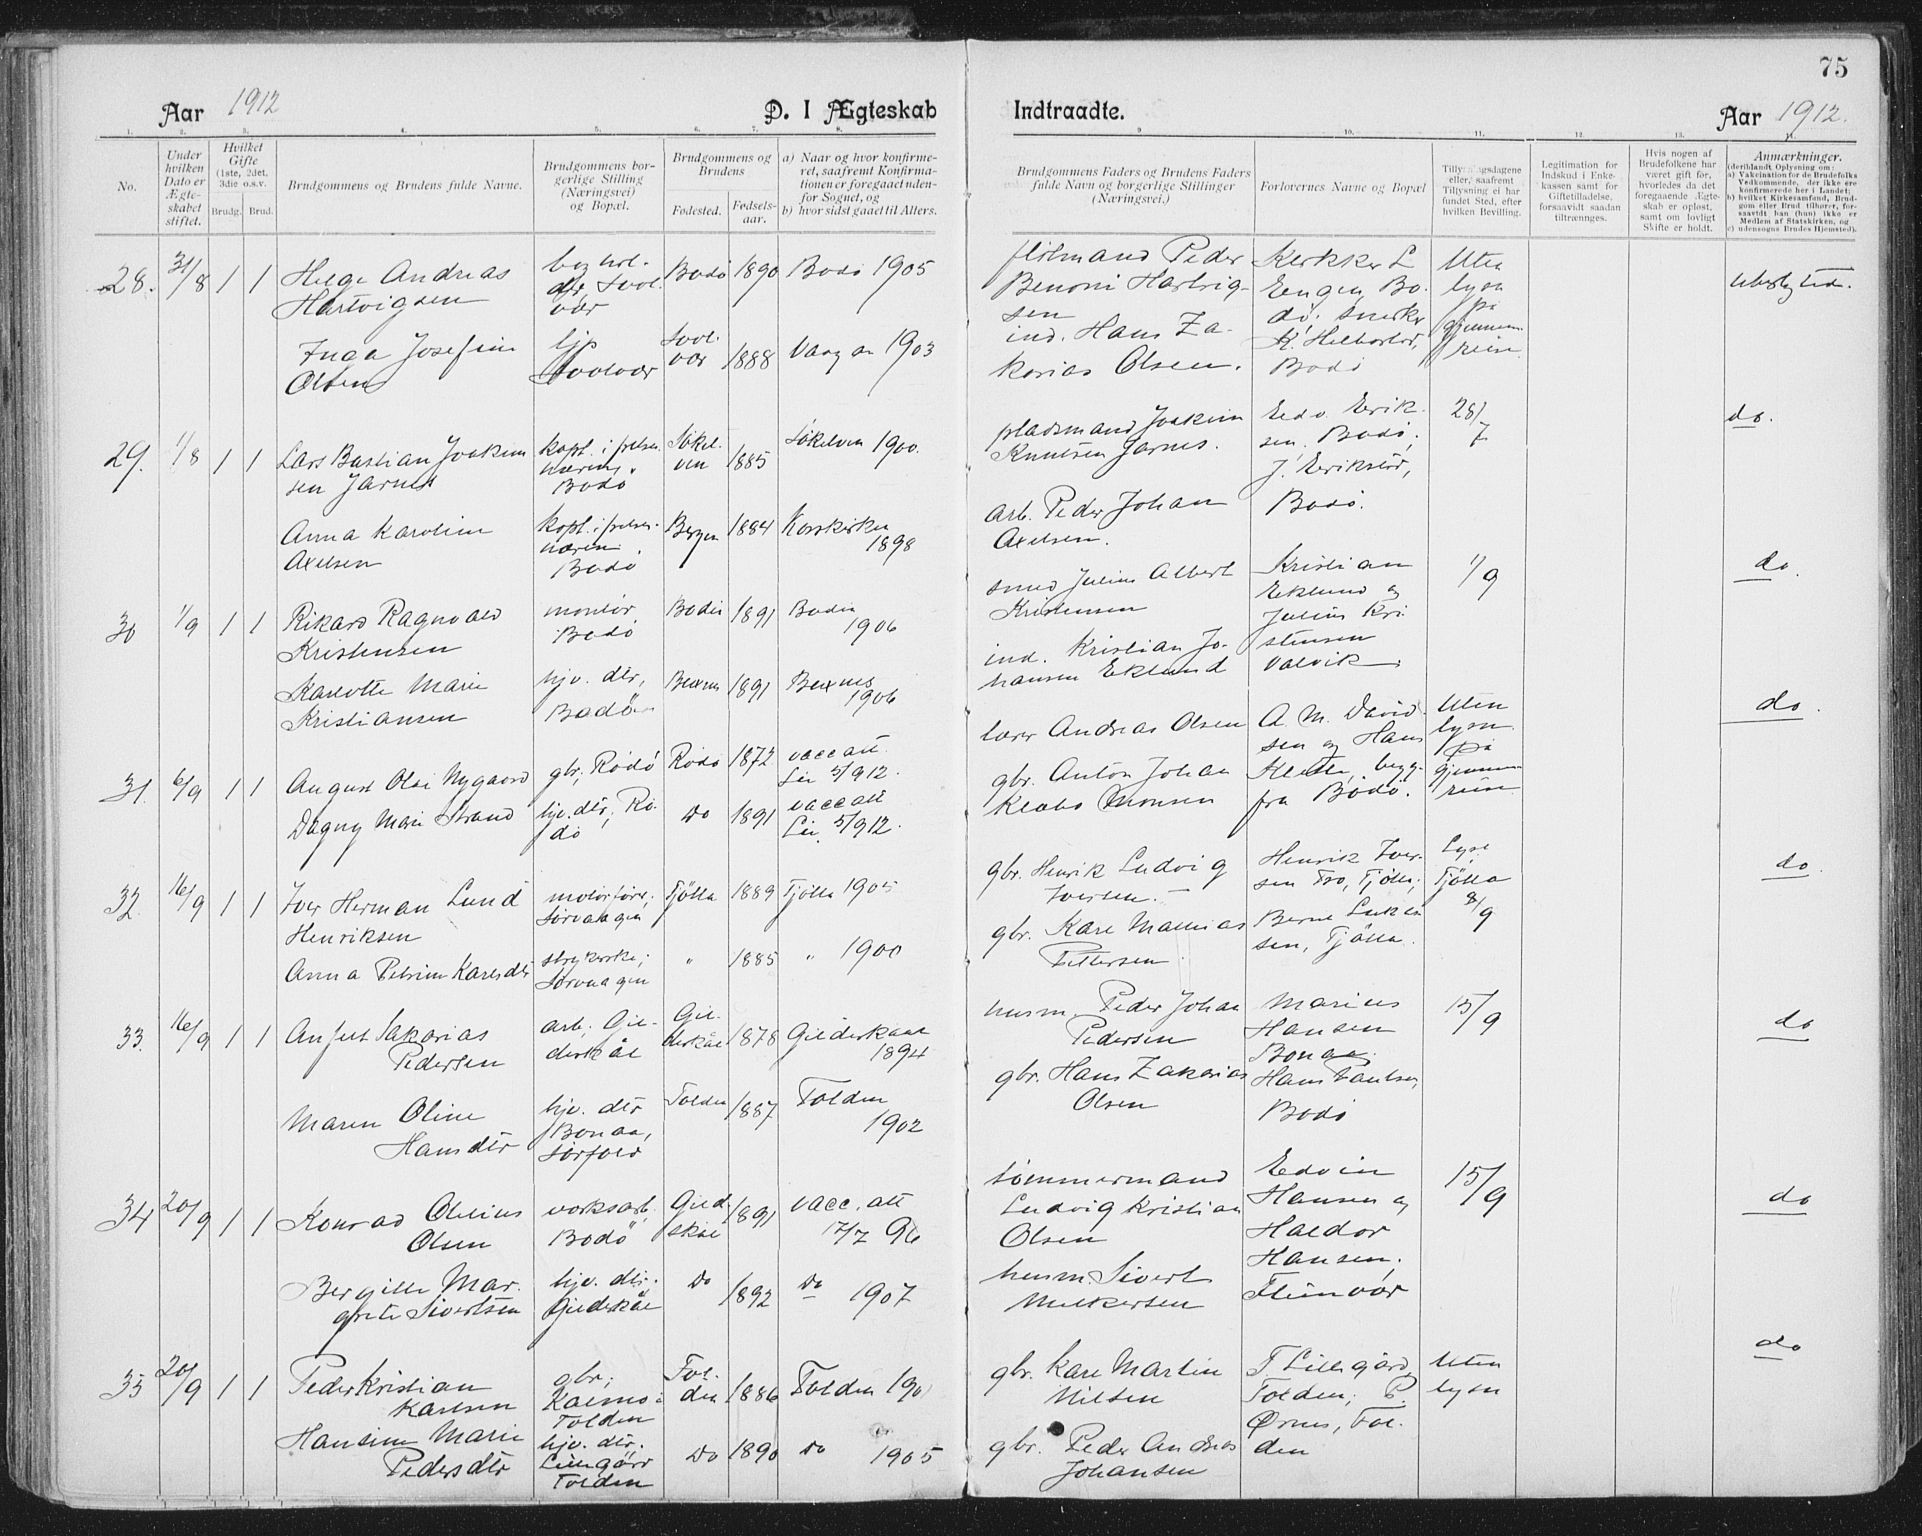 75
Aar 1912 D. I Ægteskab Indtraadte. Aar 1912.
1. 2. 3. 4. 5. 6. 7. 8. 9. 10. 11. 12. 13. 14.
No.
Under hvilken Dato er Ægteskabet stiftet.
Hvilket Gifte (1ste, 2det, 3die o.s.v.
Brudg. Brud.
Brudgommens og Brudens fulde Navne.
Brudgommens borgerlige Stilling (Næringsvei) og Bopæl.
Brudgommens og Brudens
Fødested. Fødselsaar.
a) Naar og hvor konfirmeret, saafremt Konfirmationen er foregaaet udenfor Sognet, og
b) hvor sidst gaaet til Alters.
Brudgommens Faders og Brudens Faders fulde Navn og borgerlige Stillinger (Næringsvei.)
Forlovernes Navne og Bopæl
eller, saafremt Tillysning ei har fundet Sted, efter hvilken Bevilling.
Legitimation for Indskud i Enkekassen samt for Giftetilladelse, forsaavidt saadan tiltrænges.
Hvis nogen af Brudefolkene har været gift før, hvorledes da det foregaaende Ægteskab er opløst, samt om lovligt Skifte er holdt.
Anmærkninger.
(deriblandt Oplysning om:
a) Vakcination for de Brudefolks Vedkommende, der ikke ere konfirmerede her i Landet;
b) hvilket Kirkesamfund, Brudgom eller Brud tilhører, forsaavidt han (hun) ikke er Medlem af Statskirken, og
c) udensogns Brudes Hjemsted).
28. 31/8 1 1 Helge Andreas Hartvigsen
Bodø 1890 Bodø 1905
Peder Benoni Hartvigsen
Uten lysn på
Inga Josefine Olsen
Svolvær
Svolvær 1888 Vaagan 1903
ind. Hans Zakarias Olsen.
Bodø
29. 1/8 1 1 Lars Bastian Joakimsen Jarnes
kapt. i frelsen
Bodø
1885
1900.
pladsmand Joakim Knutsen Jarnes.
Edv. Eriksen, Bodø;
Bodø.
28/7
do.
Anna Karoline Axelsen
Bodø
Bergen 1884 Korskirken 1898
arb. Peder Johan Axelsen.
30 1/9 1 1 Rikard Ragnvald Kristensen
montør, Bodø
Bodin 1891 Bodin 1906
smed Julius Albert Kristensen
Kristian Eklund og Julius Kristensen
1/9
do.
Karlotte Marie Kristiansen
hjv. dtr, Bodø
1891
1906
ind. Kristian Johansen Eklund
31. 6/9 1 1 August Olai Nygaard
gbr, Rødø Rødø 1872 vacc att. 5/9 12.
lærer Andreas Olsen
A. M. Davidsen og Hans
fra Bodø.
Uten lysn. på
do.
Dagny Marie Strand
hjv. dtr, Rødø Do 1891 vacc att 5/9 12.
gbr. Anton Johan Klabo Monsen
32. 16/9 1 1 Iver Herman Lund Henriksen
motorfører, Sørvaagen
Tjøtta 1889 Tjøtta 1905
gbr. Henrik Ludvig Iversen.
Henrik Iversen Tro, Tjøtta;
Lyst Tjøtta 8/9
do.
Anna Petrine Karlsdtr
Sørvaagen
" 1885 " 1900
gbr. Karl Mathias Pettersen
Tjøtta.
33. 16/9 1 1 Anfelt Sakarias Pedersen
arb; Gildeskål
Gildeskål 1878 Gildeskaal 1894
husm. Peder Johan Pedersen
Marius Hansen Bonaa.
15/9
do
Maren Oline Hansdtr
hjv. dtr Bonaa, Sørfold
Folden 1887 Folden 1902
gbr. Hans Zakarias Olsen
Hans Paulsen, Bodø
34 20/9 1 1 Konrad Olelius Olsen
verksarb, Bodø
1891 vacc. att 17/7 96
tømmermand Ludvig Kristian Olsen
Edvin Hansen og Haldor Hansen; Fleinvær
15/9
do
Bergitte Margrete Sivertsen
hjv. dtr. Gildeskål
Do 1892 Do 1907
husm. Sivert Melkersen
35 20/9 1 1 Peder Kristian Karlsen
gbr; Kalmo i Folden
Folden 1886 Folden
gbr. Karl Martin Nilsen
T Lillegård, Folden; P. Ørnes, Folden
Uten lysn
do
Hansine Marie Pedersdtr
hjv. dtr. Lillegård Folden
Do 1890 Do 1905
gbr. Peder Andreas Johansen